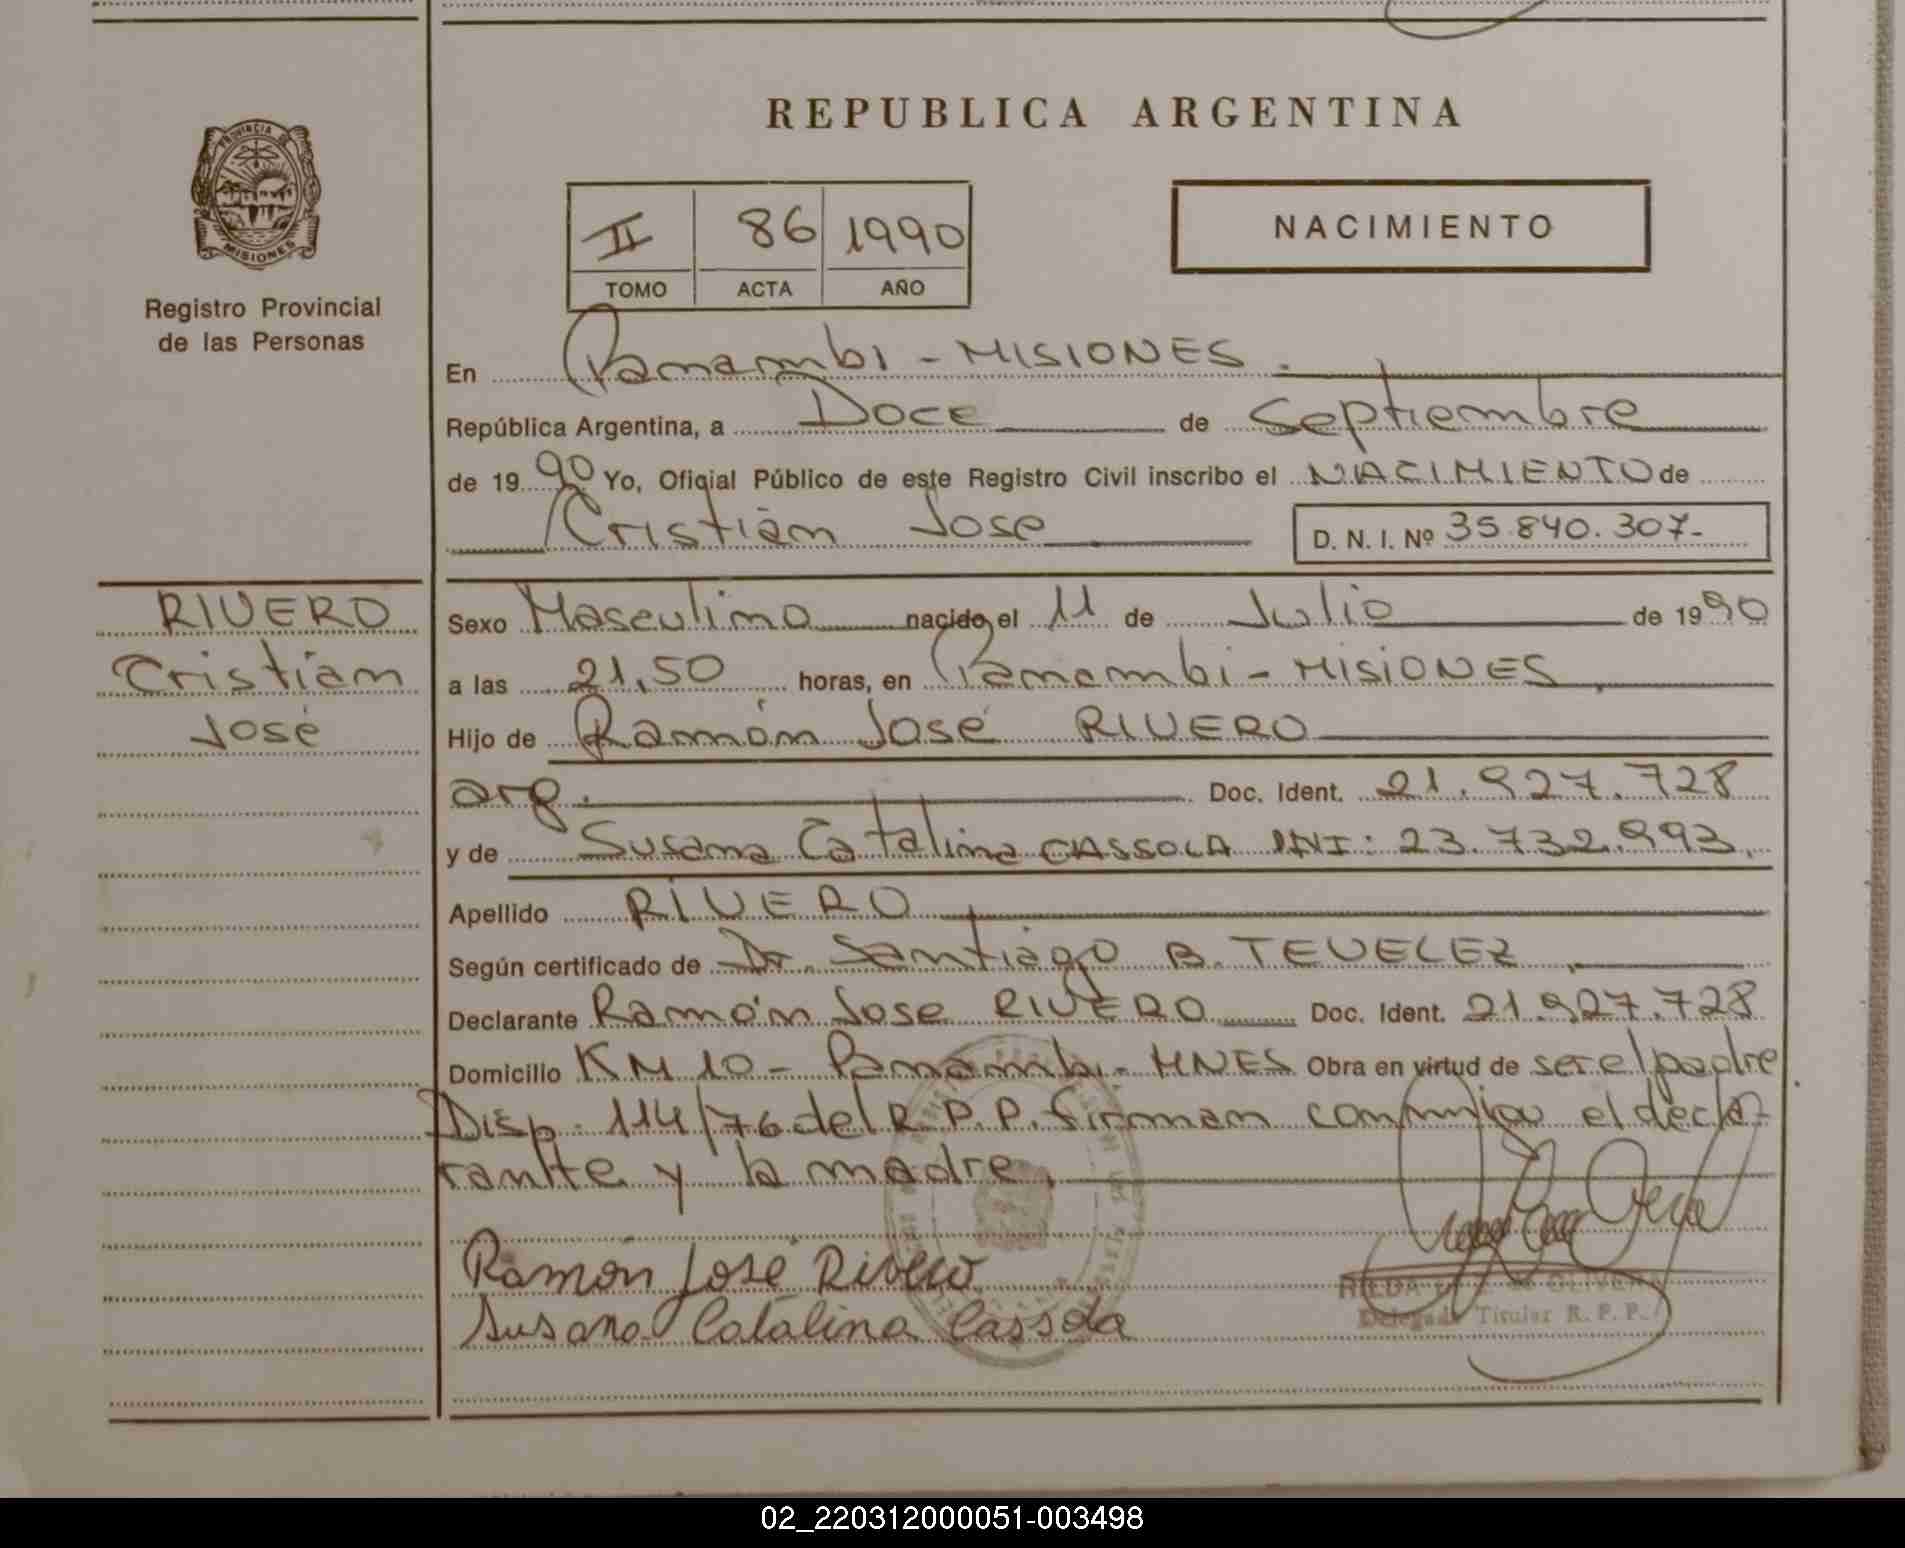 REPUBLICA ARGENTINA
PROVINCIA DE
MISIONES
Registro Provincial
de las Personas
II 86 1990
TOMO ACTA AÑO
NACIMIENTO
En Panambi - MISIONES.
República Argentina, a Doce de Septiembre
de 1990 Yo, Oficial Público de este Registro Civil inscribo el NACIMIENTO de
Cristián Jose D. N. I. Nº 35.840.307-
RIVERO
Cristian
José
Sexo Masculino nacido el 11 de Julio de 1990
a las 21,50 horas, en Panambi - MISIONES.
Hijo de Ramón José RIVERO
arg. Doc. Ident. 21.927.728
y de Susana Catalina CASSOLA DNI: 23.732.993.
Apellido RIVERO
Según certificado de Dr. Santiago B. TEVELEZ.
Declarante Ramón Jose RIVERO Doc. Ident. 21.927.728
Domicilio KM 10 - Panambi - MNES Obra en virtud de ser el padre.
Disp. 114/76 del R.P.P. firman conmigo el decla-
rante y la madre.
Ramón José Rivero
Susana Catalina Cassola
HILDA de OLIVERA
Delegada Titular R. P. P.
02_220312000051-003498